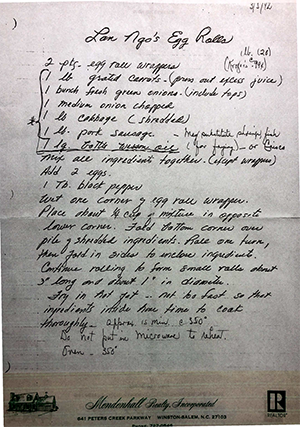 Lan Ngo's Egg Rolls
2 pkg. egg roll wrappers
1 lb. grated carrots - (press out excess juice)
1 bunch fresh green onions - (include tops)
1 medium onion chopped
1 lb cabbage (shredded)
1 lb. pork sausage - May substitute shrimp, fish
1 lg. bottle wesson oil (for frying) - or
Mix all ingredients together. (except wrappers)
Add 2 eggs.
1 TB. black pepper
Wet one corner of egg roll wrapper.
Place about ¼ cup of mixture in opposite
lower corner. Fold bottom corner over
pile of shredded ingredients. Roll one turn,
then fold in sides to enclose ingredients.
Continue rolling to form small rolls about
3" long and about 1" in diameter.
Fry in hot fat - not too fast so that
ingredients inside have time to cook
thoroughly - approx 12 min @ 350°
Do not put in microwave to reheat.
Oven - 350°
Mendenhall Realty, Incorporated
641 PETERS CREEK PARKWAY WINSTON-SALEM, N.C. 27103
R
REALTOR